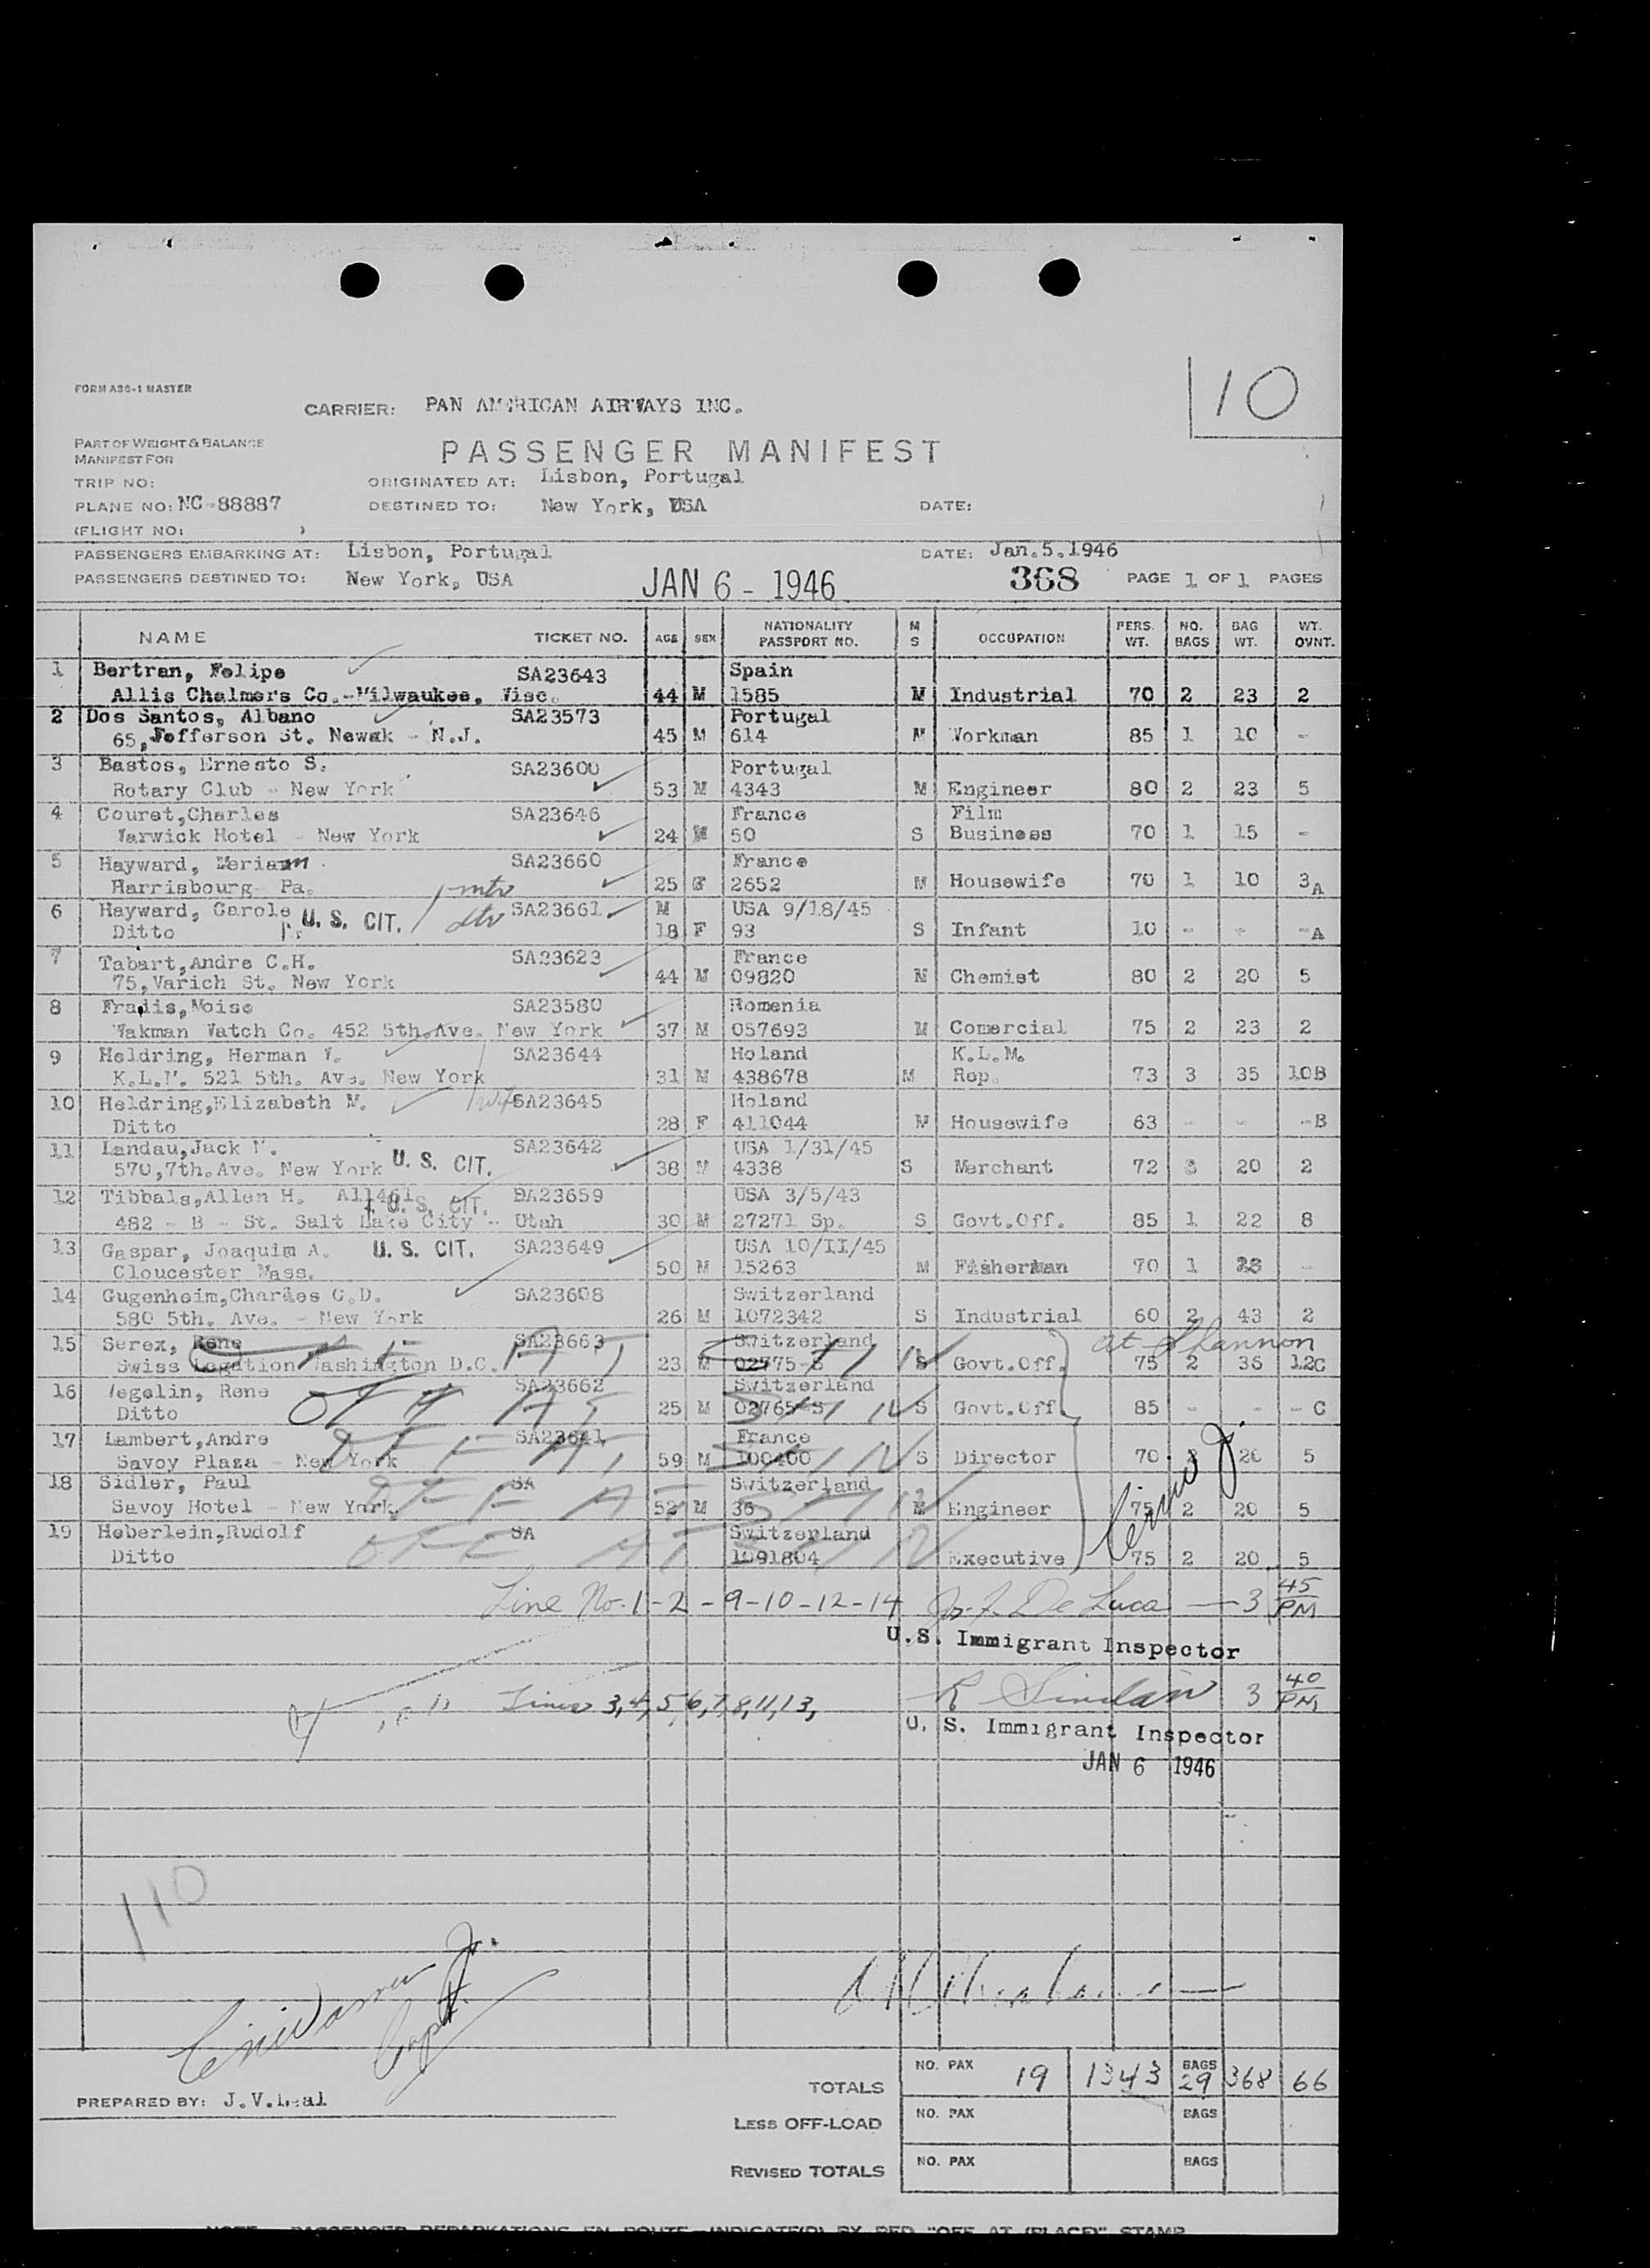 10
FORM A30-1 MASTER
CARRIER: PAN AMERICAN AIRWAYS INC.
PART OF WEIGHT & BALANCE
MANIFEST FOR
PASSENGER MANIFEST
TRIP NO: ORIGINATED AT: Lisbon, Portugal
PLANE NO: NC-88887 DESTINED TO: New York, USA DATE:
(FLIGHT NO: )
PASSENGERS EMBARKING AT: Lisbon, Portugal DATE: Jan.5.1946
PASSENGERS DESTINED TO: New York, USA JAN 6 - 1946 368 PAGE 1 OF 1 PAGES
NAME TICKET NO. AGE SEX NATIONALITY PASSPORT NO. M S OCCUPATION PERS. WT. NO. BAGS BAG WT. WT. OVNT.
1 Bertran, Felipe SA23643 Spain
Allis Chalmers Co.-Milwaukee, Wisc. 44 M 1585 M Industrial 70 2 23 2
2 Dos Santos, Albano SA23573 Portugal
65, Jefferson St. Newak - N.J. 45 M 614 M Workman 85 1 10 -
3 Bastos, Ernesto S. SA23600 Portugal
Rotary Club - New York 53 M 4343 M Engineer 80 2 23 5
4 Couret,Charles SA23646 France Film
Warwick Hotel - New York 24 M 50 S Business 70 1 15 -
5 Hayward, Meriam SA23660 France
Harrisbourg- Pa. 25 F 2652 M Housewife 70 1 10 3A
6 Hayward, Carole U. S. CIT. SA23661 M USA 9/18/45
Ditto 18 F 93 S Infant 10 - - -A
7 Tabart,Andre C.H. SA23623 France
75,Varich St. New York 44 M 09820 M Chemist 80 2 20 5
8 Fradis,Moise SA23580 Romenia
Wakman Watch Co. 452 5th.Ave. New York 37 M 057693 M Comercial 75 2 23 2
9 Heldring, Herman V. SA23644 Holand K.L.M.
K.L.M. 521 5th. Ave. New York 31 M 438678 M Rep. 73 3 35 10B
10 Heldring,Elizabeth M. SA23645 Holand
Ditto 28 F 411044 M Housewife 63 - - -B
11 Landau,Jack N. U. S. CIT. SA23642 USA 1/31/45
570,7th.Ave. New York 38 M 4338 S Merchant 72 3 20 2
12 Tibbals,Allen H. U. S. CIT. SA23659 USA 3/5/43
482 - B - St. Salt Lake City - Utah 30 M 27271 Sp. S Govt.Off. 85 1 22 8
13 Gaspar, Joaquim A. U. S. CIT. SA23649 USA 10/II/45
Cloucester Mass. 50 M 15263 M Fisherman 70 1 -
14 Gugenheim,Charles C.D. SA23608 Switzerland
580 5th. Ave. - New York 26 M 1072342 S Industrial 60 2 43 2
15 Serex, Rene SA23663 OFF AT SHN Switzerland at Shannon
Swiss Legation Washington D.C. 23 M 02775-S S Govt.Off. 75 2 36 12C
16 Vegelin, Rene SA23662 OFF AT SHN Switzerland
Ditto 25 M 02765-S S Govt.Off. 85 - - -C
17 Lambert,Andre SA23641 OFF AT SHN France
Savoy Plaza - New York 59 M 100400 S Director 70 2 20 5
18 Sidler, Paul SA OFF AT SHN Switzerland
Savoy Hotel - New York. 52 M 36 M Engineer 75 2 20 5
19 Heberlein,Rudolf SA OFF AT SHN Switzerland
Ditto 1091804 Executive 75 2 20 5
Line No. 1-2-9-10-12-14 De Luca - 3 45 PM
U.S. Immigrant Inspector
Lines 3,4,5,6,7,8,11,13, R Sinclair 3 40 PM
U. S. Immigrant Inspector
JAN 6 1946
110
Jr.
Capt.
PREPARED BY: J.V.Leal
TOTALS NO. PAX 19 1343 BAGS 29 368 66
LESS OFF-LOAD NO. PAX BAGS
REVISED TOTALS NO. PAX BAGS